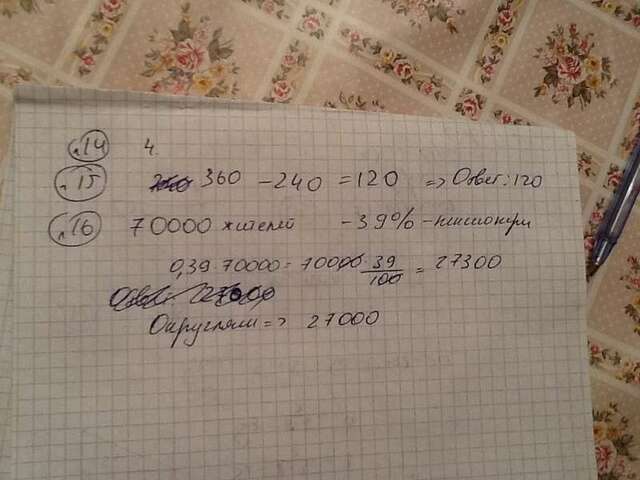 14 4.
15 360 - 240 = 120 => Ответ: 120
16 70000 жителей - 39% - пенсионеры
0,39·70000 = 70000· 39/100 = 27300
Округляем => 27000